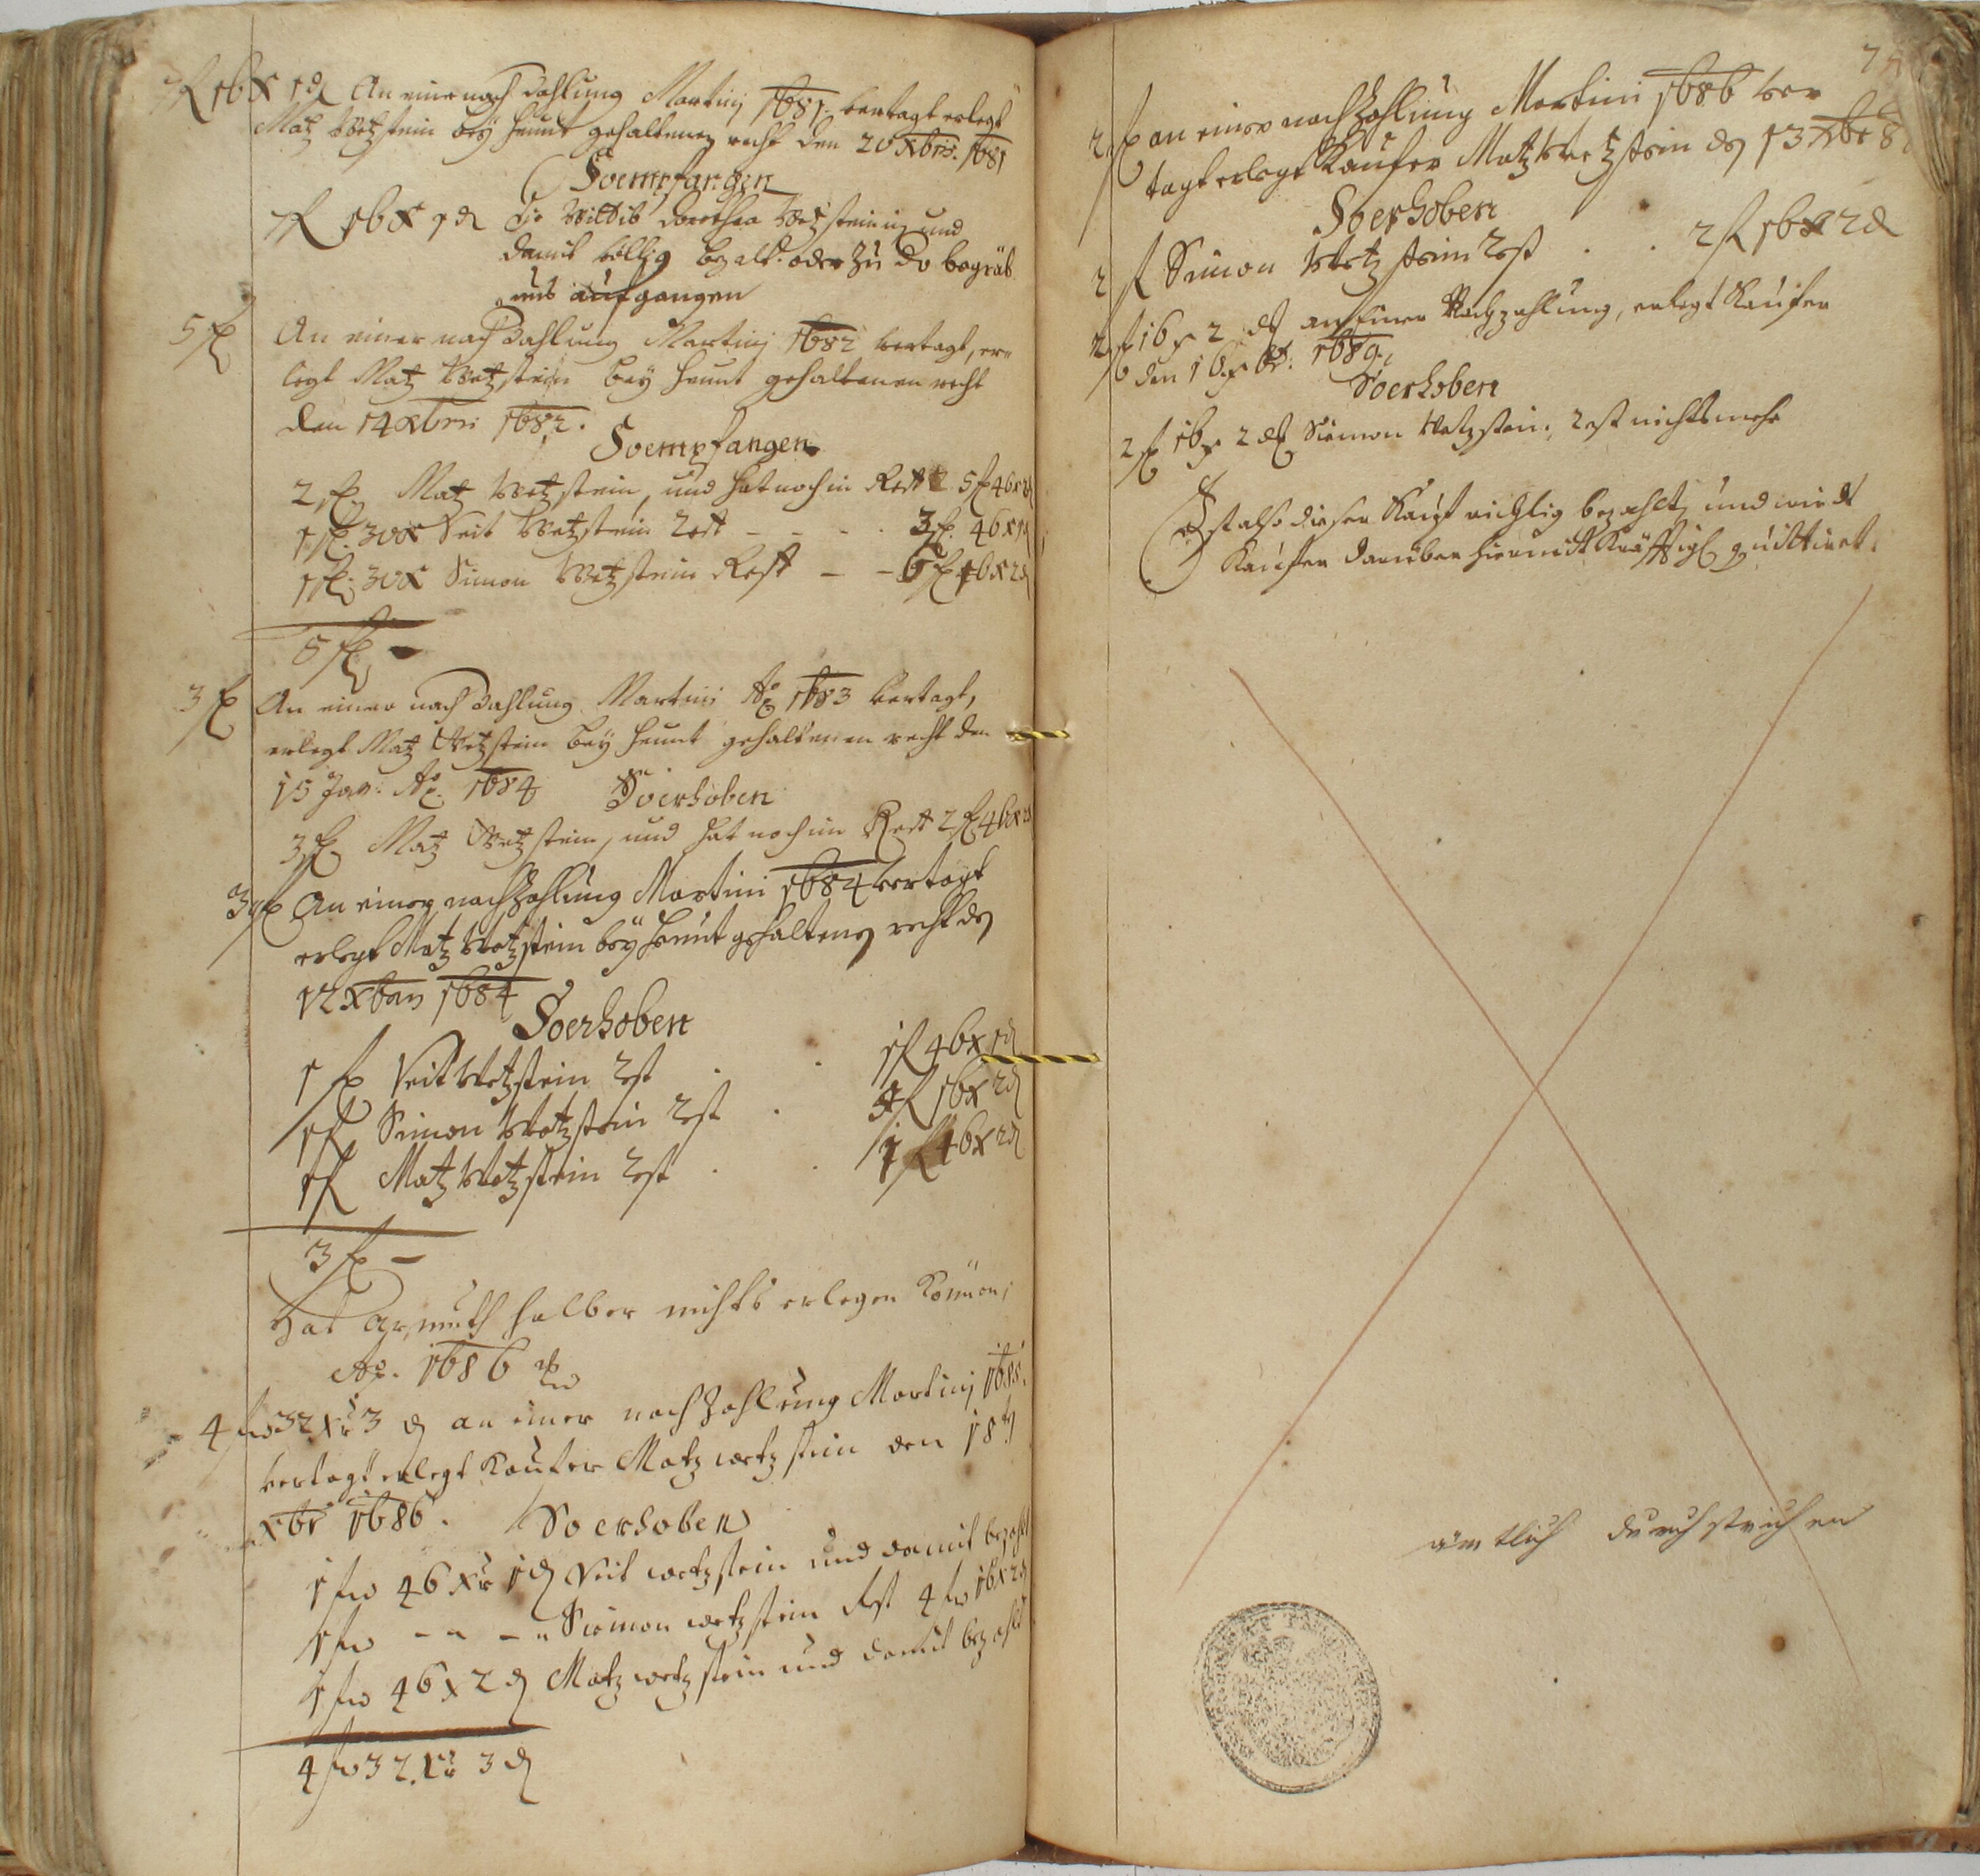 7 fl 16 x 1 d An einer nach Zahlung Martinj 1681 vertagt erlegt
Matz Wetzstein beÿ heunt gehaltenen recht den 20 Xbris. 1681
So empfangen
7 fl 16 x 1 d die Wittib Dorothea Wetzsteinin und
damit völlig bezalt. oder zu do begräb
nus aufgangen
5 fl An einer nach Zahlung Martinj 1682 vertagt, er=
legt Matz Wetzstein beÿ heunt gehaltenen recht
den 14 Xbris 1682.
So empfangen
2 fl. Matz Wetzstein, und hat noch in Rest 5 fl 46 x
1 fl. 30 x Veit Wetzstein Rest - - - 3 fl. 46 x 1 d
1 fl. 30 x Simon Wetzstein Rest - - 6 fl 16 x 2 d
5 fl -
3 fl An einer nach Zahlung Martinj Aō 1683 vertagt,
erlegt Matz Wetzstein beÿ heunt gehaltenen recht den
15 Jan: Aō. 1684 So erhoben
3 fl Matz Wetzstein, und hat noch im Rest 2 fl 46 x
3 fl An einer nachZahlung Martini 1684 vertagt
erlegt Matz Wetzstein beÿ heunt gehaltenen recht den
12 Xbris 1684
So erhoben
1 fl Veit Wetzstein Rest . . 1 fl 46 x 1 d
1 fl Simon Wetzstein Rest . 5 fl 16 x 2 d
1 fl Matz Wetzstein Rest . . 1 fl 46 x 2 d
3 fl -
Hat Armuth halber nichts erlegen können,
Aō. 1686
4 fl 32 xr 3 d an einer nachZahlung Martinj 1685.
vertagt erlegt Kaufer Matz wetzstein den 18
Xbr 1686. So erhoben
1 fl 46 xr 1 d Veit wetzstein und damit bezahlt
1 fl - - - Siemon wetzstein Rest 4 fl 16 x 2 d
1 fl 46 x 2 d Matz wetzstein und damit bezahlt
4 fl 32 xr 3 d
2 fl an einer nachZahlung Martini 1686 ver
tagt erlegt Kaufer Matz Wetzstein den 13 Xbr 8
So erhoben
2 fl Simon Wetzstein Rest . . 2 fl 16 x 2 d
2 fl 16 x 2 d an einer Nachzahlung, erlegt Kaufer
den 16 Xbr: 1689.
So erhoben
2 fl 16 x 2 d Siemon Wetzstein, Rest nichts mehr
Ist also dieser Kauf richtig bezahlt, und wirdt
Kaufer darüber hiermit kräfftigl quittiret.
ämtlich durchstrichen